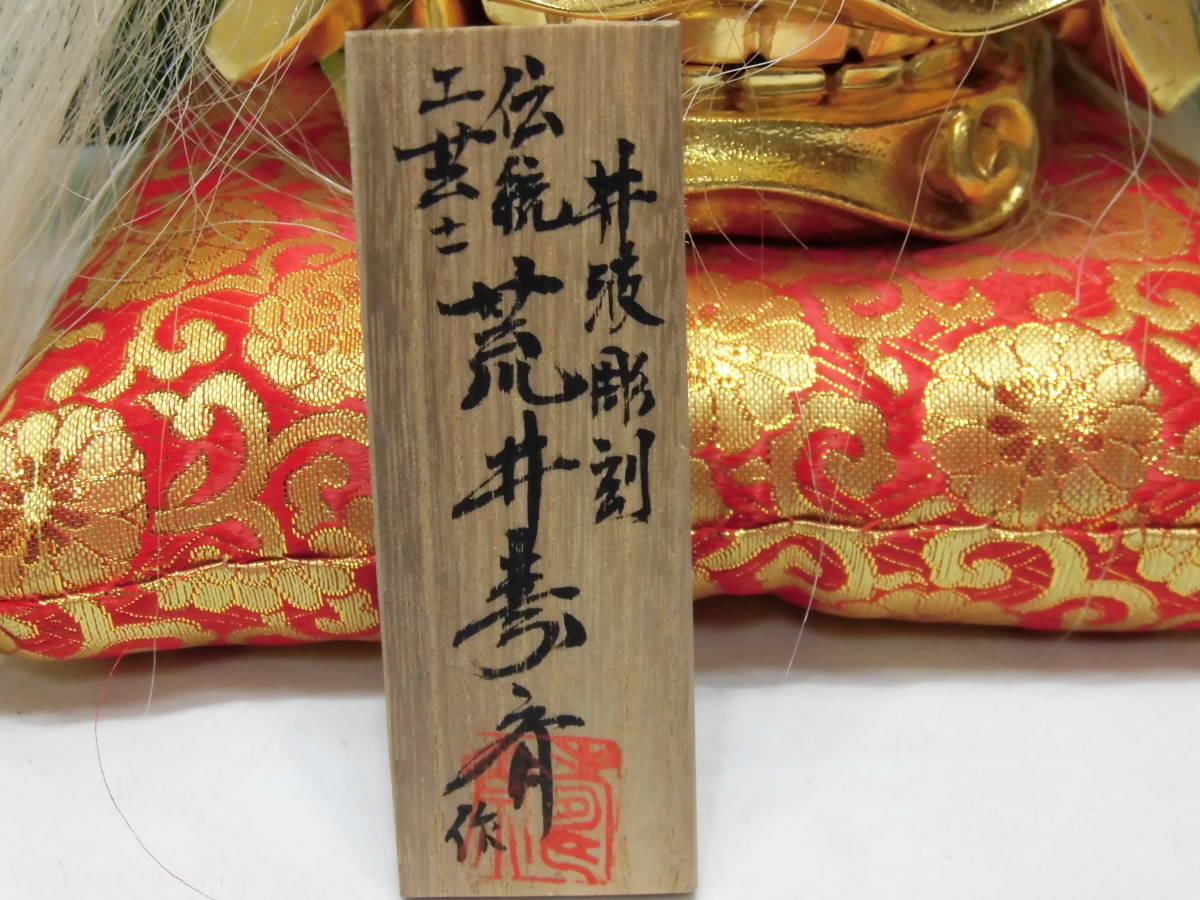 井波彫刻
伝統
工芸士
荒井寿斉
作